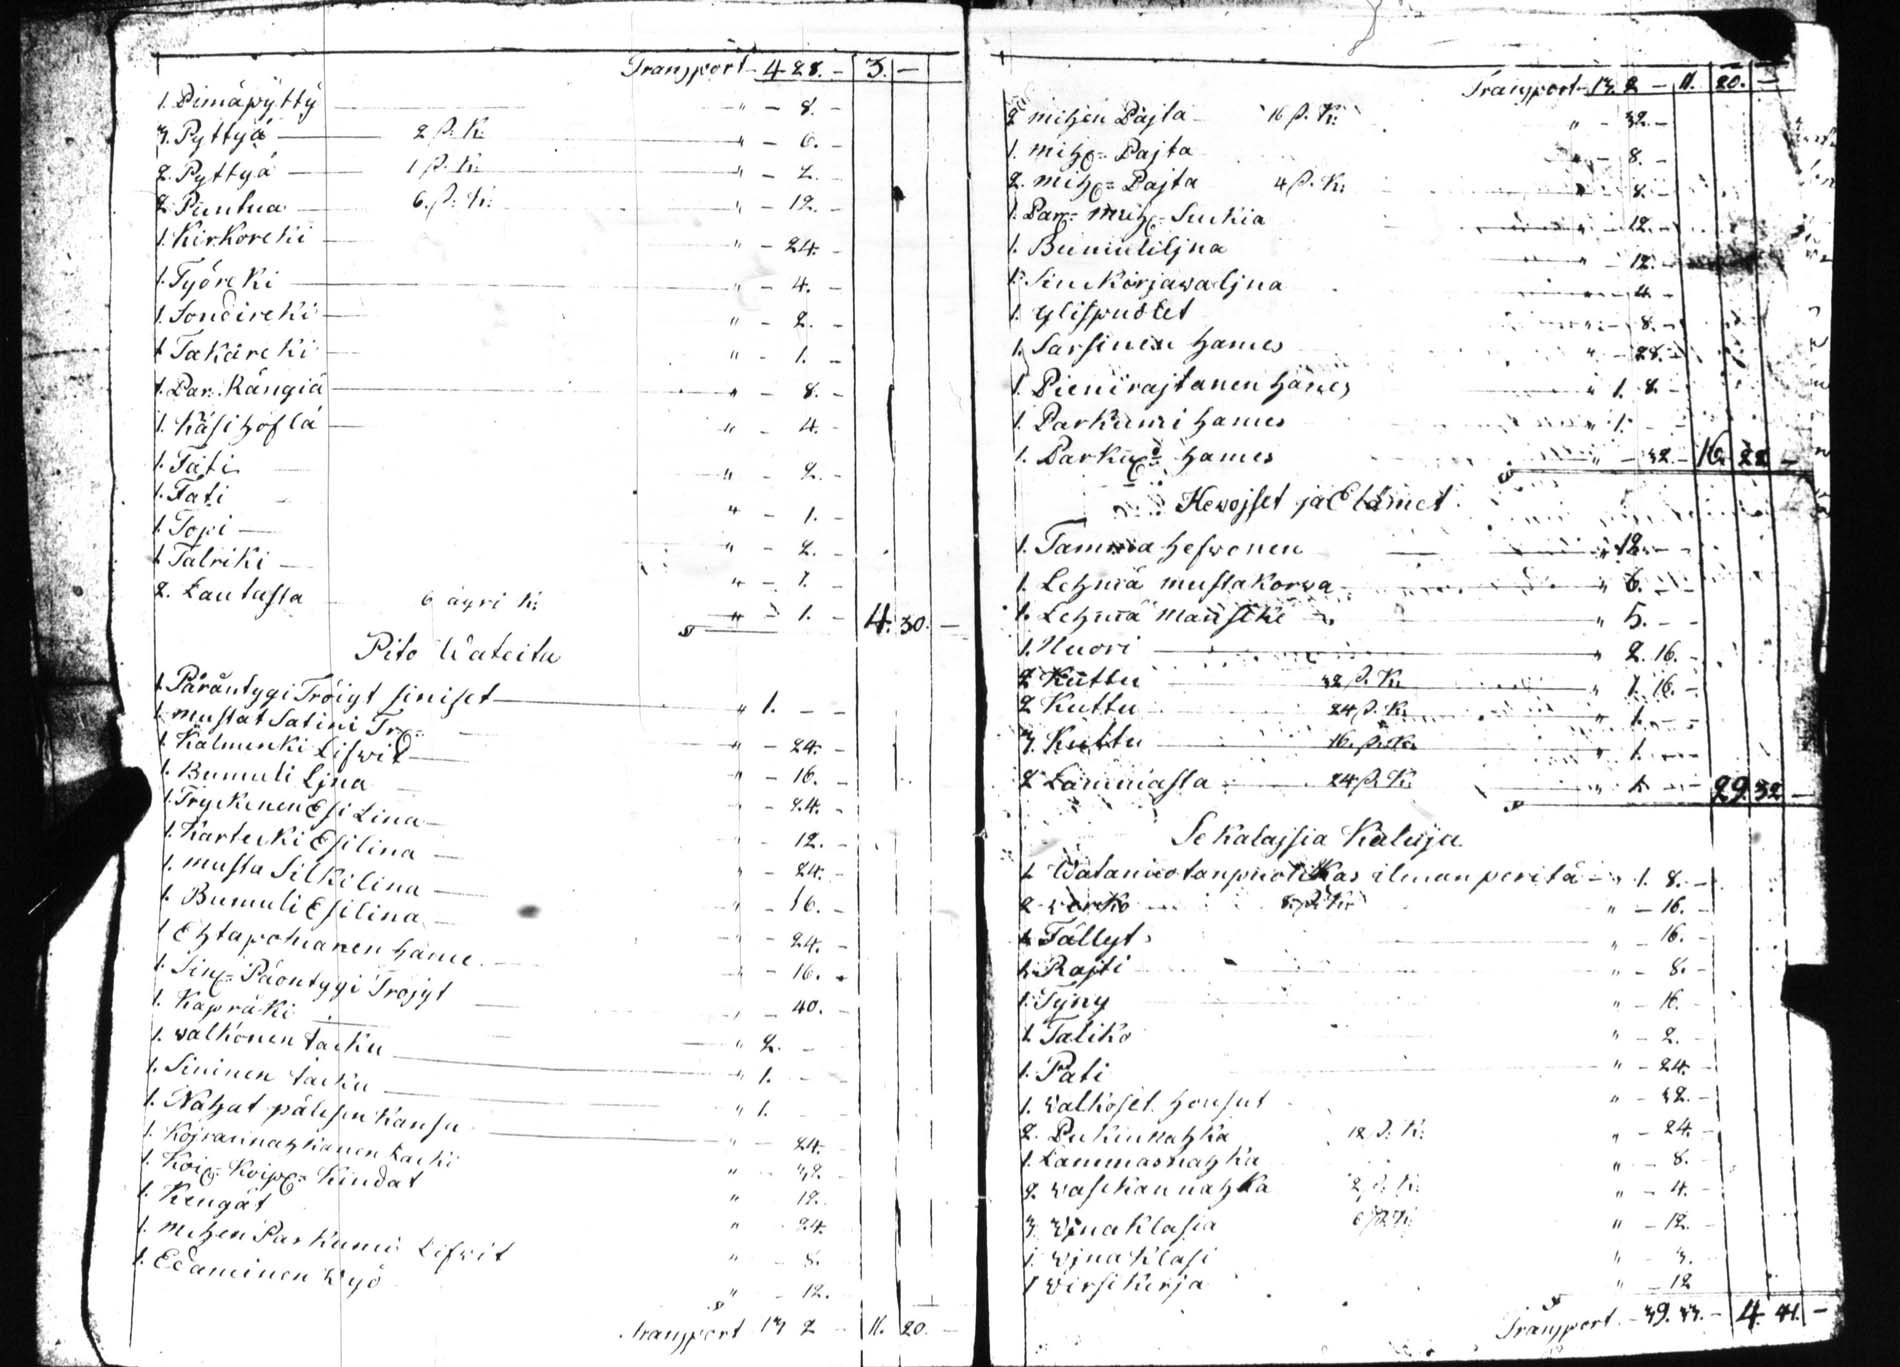 Transport 4 28. - 3. -
1. Pimäpyttÿ " - 8. -
3. Pyttyä 2 β. K: " - 6. -
2. Pyttyä 1 β. K: " - 2. -
2 Puntua 6. β. K: " - 12. -
1. Kirkoreki " - 24. -
1. Työreki " - 4. -
1. Sondireki " - 2. -
1. Takareki " - 1. -
1. Par. Rängiä " - 8. -
1. Käsihöflä " - 4. -
1. Tati " - 2. -
1. Tati " - 1. -
1. Topi " - 2. -
1. Talriki " - 1. -
2. Lautasta 6 äyri K: " - 1. - 4. 30. -
Pito Wateita
1. Päräntygi Tröigt siniset " 1. - -
1. mustat Satini Tr. " - 24. -
1. Kalmunki Lifwit " - 16. -
1. Bumuli Ljna " - 24. -
1. Tryckinen Esi Lina " - 12. -
1. Kartuki Esilina " - 24. -
1. musta Silkilina " - 16. -
1. Bumuli Esilina " - 24. -
1. Ehtapohianen hame " - 16. -
1. Sin= Päontygi Tröjyt " - 40. -
1. Kapräki " 2. -
1. walkonen takku " 1. - -
1. Sininen takku " 1. - -
1. Nahat pälisen Kansu " - 24. -
1. Kojrannahkanen Lacki " - 32. -
1. Koi= Koip= Kindat " 12. -
1. Kengät " 24. -
1. Mihen Parkumi Lifwit " - 8. -
1. Edaminen Wyö " - 12. -
Transport 13 2 - 11. 20. -
Transport 13. 2 - 11. 20. -
2 mihen Pajta 16 β. K: " - 32. -
1. mih= Pajta " - 8. -
2. mih= Pajta 4 β. K: " - 8. -
1. Par= mih= Suckia " - 12. -
1. Bumuliljna " - 12. -
1. Sinikirjawaljna " - 4. -
1. Ylispuolet " - 8. -
1. Sarsinen hames " - 28. -
1. Pienirajtanen hames " 1. 8. -
1. Parkumi hames " 1. - -
1. Park= hames " - 32. - 16. 22 -
Hewojset ja Elämet
1. Tamma hefwonen " 12. - -
1. Lehmä mustakorwa " 6. - -
1. Lehmä Mansicki " 5. - -
1. Nuori " 2. 16. -
2 Kuttu 32 β. K: " 1. 16. -
2 Kuttu 24 β. K: " 1. - -
3. Kuttu 16. β. K: " 1. - -
2 Lammasta 24 β. K: " 1. - - 29. 32 -
Sekalajsia Kaluja
1. Watanwotanpuolikas ilman peritä " 1. 8. -
2 werko 8. β. K: " - 16. -
1. Tällyt " - 16. -
1. Rajti " - 8. -
1. Tyny " - 16. -
1. Taliko " - 2. -
1. Pati " - 24. -
1. walkoset housut " - 32. -
2. Pukinnahka 12 β. K: " - 24. -
1. Lammasnahka " - 8. -
2 wasikannahka 2 β. K: " - 4. -
3. Wjnaklasia 6 β. K: " - 12. -
1. Wjnaklasi " - 3. -
1 wirsikirja " - 12
Transport 39. 33. - 4. 41. -